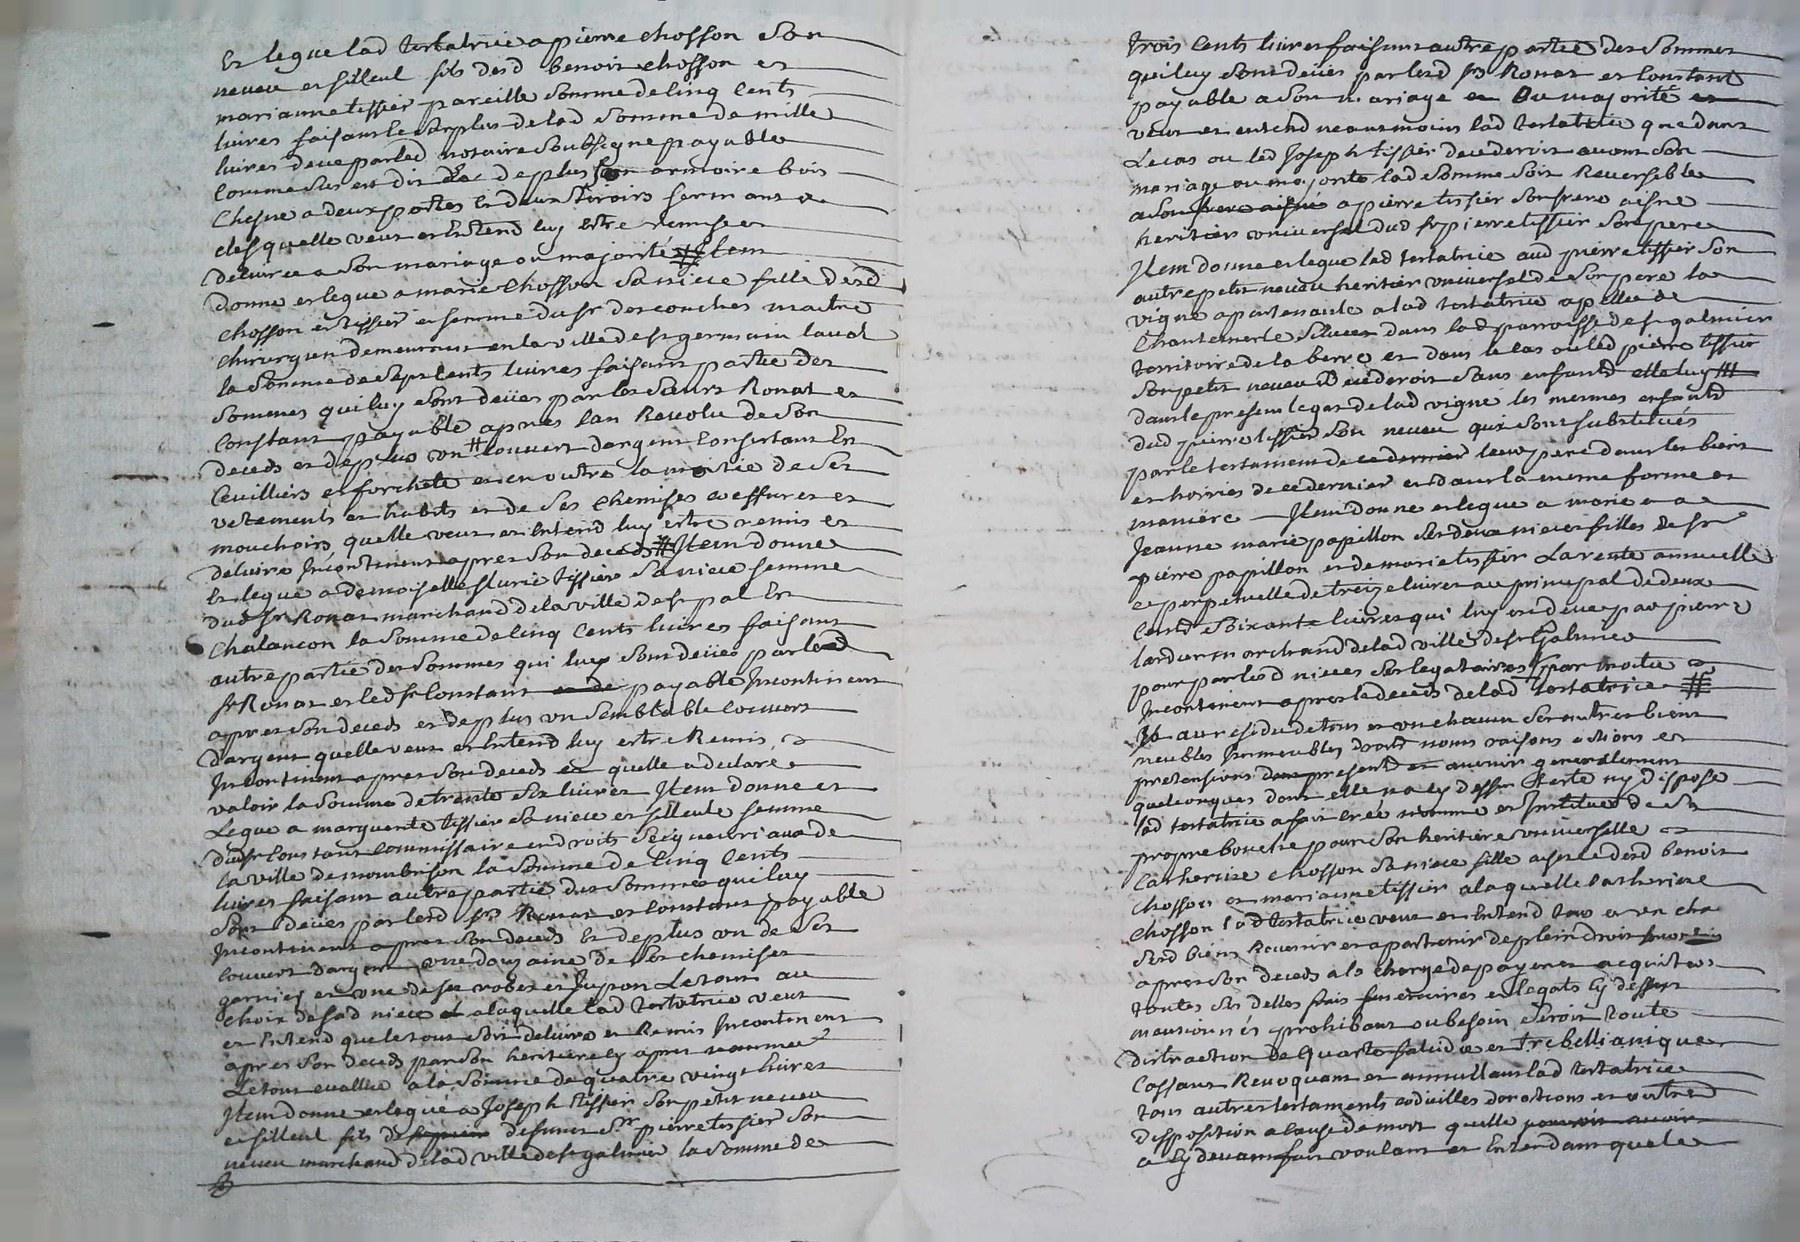 Et legue lad testatrice a pierre chosson son
neveu et filleul fils desd benoit chosson et
marianne tissier pareille somme de cinq cents
livres faisant le surplus de lad somme de mille
livres deue par led notaire soubsigne payable
comme sus est dit de plus son armoire bois
chesne a deux portes et deux tiroirs fermant a
clef quelle veut et entend luy estre remise et
delivree a son mariage ou majorité # Item
donne et legue a marie chosson sa niece fille desd
chosson et tissier et femme du sr descouches maitre
chirurgien demeurant en la ville de st germain laval
la somme de sept cents livres faisant partie des
sommes qui luy sont deües par les sieurs Ronat et
Constant payable apres lan Revolu de son
deceds et de plus un # couvert dargent consistant en
Ceuilliers et forchete et en outre la moitie de ses
vetements et habits et de ses chemises coeffures et
mouchoirs quelle veut et entend luy estre remis et
delivre Incontinent apres son deceds # Item donne
et legue a demoiselle fleurie tissier sa niece femme
dud sr Ronat marchand de la ville de st pal en
Chalancon la somme de cinq cents livres faisant
autre partie des sommes qui luy sont deües par led
sr Ronat et led sr Constant payable Incontinent
apres son deceds et de plus un semblable couvert
dargent quelle veut et entend luy estre Remis
Incontinent apres son deceds et quelle a declaré
valoir la somme de trente six livres Item donne et
Legue a marguerite tissier sa niece et filleule femme
dud sr Constant commissaire en droits seigneuriaux de
la ville de montbrison la somme de Cinq Cents
livres faisant autre partie des sommes qui luy
sont deües par lesd srs Ronat et Constant payable
Incontinent apres son deceds et de plus un de ses
couvert dargent une douzaine de ses chemises
garnies et une de ses robes et Jupon Le tout au
choix de sad niece et a laquelle lad testatrice veut
et entend que le tout soit delivré et Remis Incontinent
apres son deceds par son heritiere cy apres nommee
Le tout evallué a la somme de quatre vingt livres
Item donne et legué a Joseph tissier son petit neveu
et filleul fils de defunt sr pierre tissier son
neveu marchand de lad ville de st galmier la somme de
trois Cents livres faisant autre partie des sommes
qui luy sont deües par lesd srs Ronat et Constant
payable a son mariage ou majorité
veut et entend neantmoins lad testatrice que dans
Le cas ou led Joseph tissier decederoit avant son
mariage ou majorité lad somme soit Reversible
a son frere aisne a pierre tissier son frere aisne
heritier universel dud fu pierre tissier son pere
Item donne et legue lad testatrice aud pierre tissier son
autre petit neveu heritier universel de son pere la
vigne apartenante a lad testatrice apellee de
Chantemerle scituee dans lad parroisse de st galmier
territoire de la berre et dans le cas ou led pierre tissier
son petit neveu decederoit sans enfants elle luy #
dans le present legat de lad vigne les mesmes enfants
dud pierre tissier son neveu qui sont substitués
par le testament de ce dernier leur pere dans les biens
et hoiries de ce dernier et dans la meme forme et
maniere — Item donne et legue a marie et a
Jeanne marie papillon ses deux nieces filles de sr
pierre papillon et de marie tissier La rente annuelle
et perpetuelle de treize livres au principal de deux
Cents soixante livres qui luy est deue par pierre
lardier marchand de lad ville de st Galmier
pour par lesd nieces ses legataires par moitie
Incontinent apres le deceds de lad testatrice #
Et au residu de tous et un chacun ses autres biens
meubles Immeubles droits noms raisons actions et
pretensions present et avenir generallement
quelconques dont elle na cy dessus Testé ny disposé
lad testatrice a fait créé nommé et Institué de sa
propre bouche pour son heritiere universelle
Catherine chosson sa niece fille ainee desd benoit
chosson et marianne tissier a laquelle Catherine
chosson lad testatrice veut et entend tous et un cha
sesd biens Revenir et apartenir de plein droit
apres son deceds a la charge de payer et acquiter
toutes ses dettes frais funeraires et legats cy dessus
mentionnés prohibant ou besoin seroit toute
distraction de quarte falcidie et trebellianique
Cassant Revoquant et annullant lad testatrice
tous autres testaments codicilles donations et autres
disposition a cause de mort quelle pourroit avoir
cy devant fait voulant et entendant que le